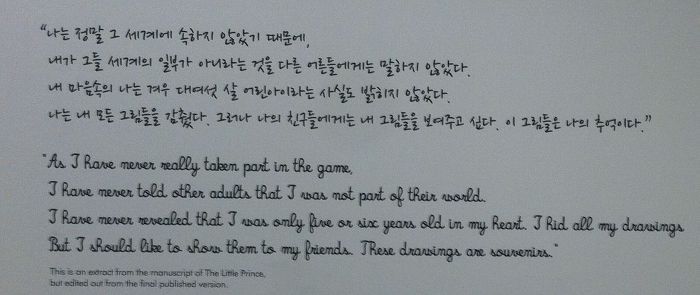 “나는 정말 그 세계에 속하지 않았기 때문에,
내가 그들 세계의 일부가 아니라는 것을 다른 어른들에게는 말하지 않았다.
내 마음속의 나는 겨우 대여섯 살 어린아이라는 사실도 밝히지 않았다.
나는 내 모든 그림들을 감췄다. 그러나 나의 친구들에게는 내 그림들을 보여주고 싶다. 이 그림들은 나의 추억이다.”
"As I have never really taken part in the game,
I have never told other adults that I was not part of their world.
I have never revealed that I was only five or six years old in my heart. I hid all my drawings
But I should like to show them to my friends. These drawings are souvenirs."
This is an extract from the manuscript of The Little Prince,
but edited out from the final published version.